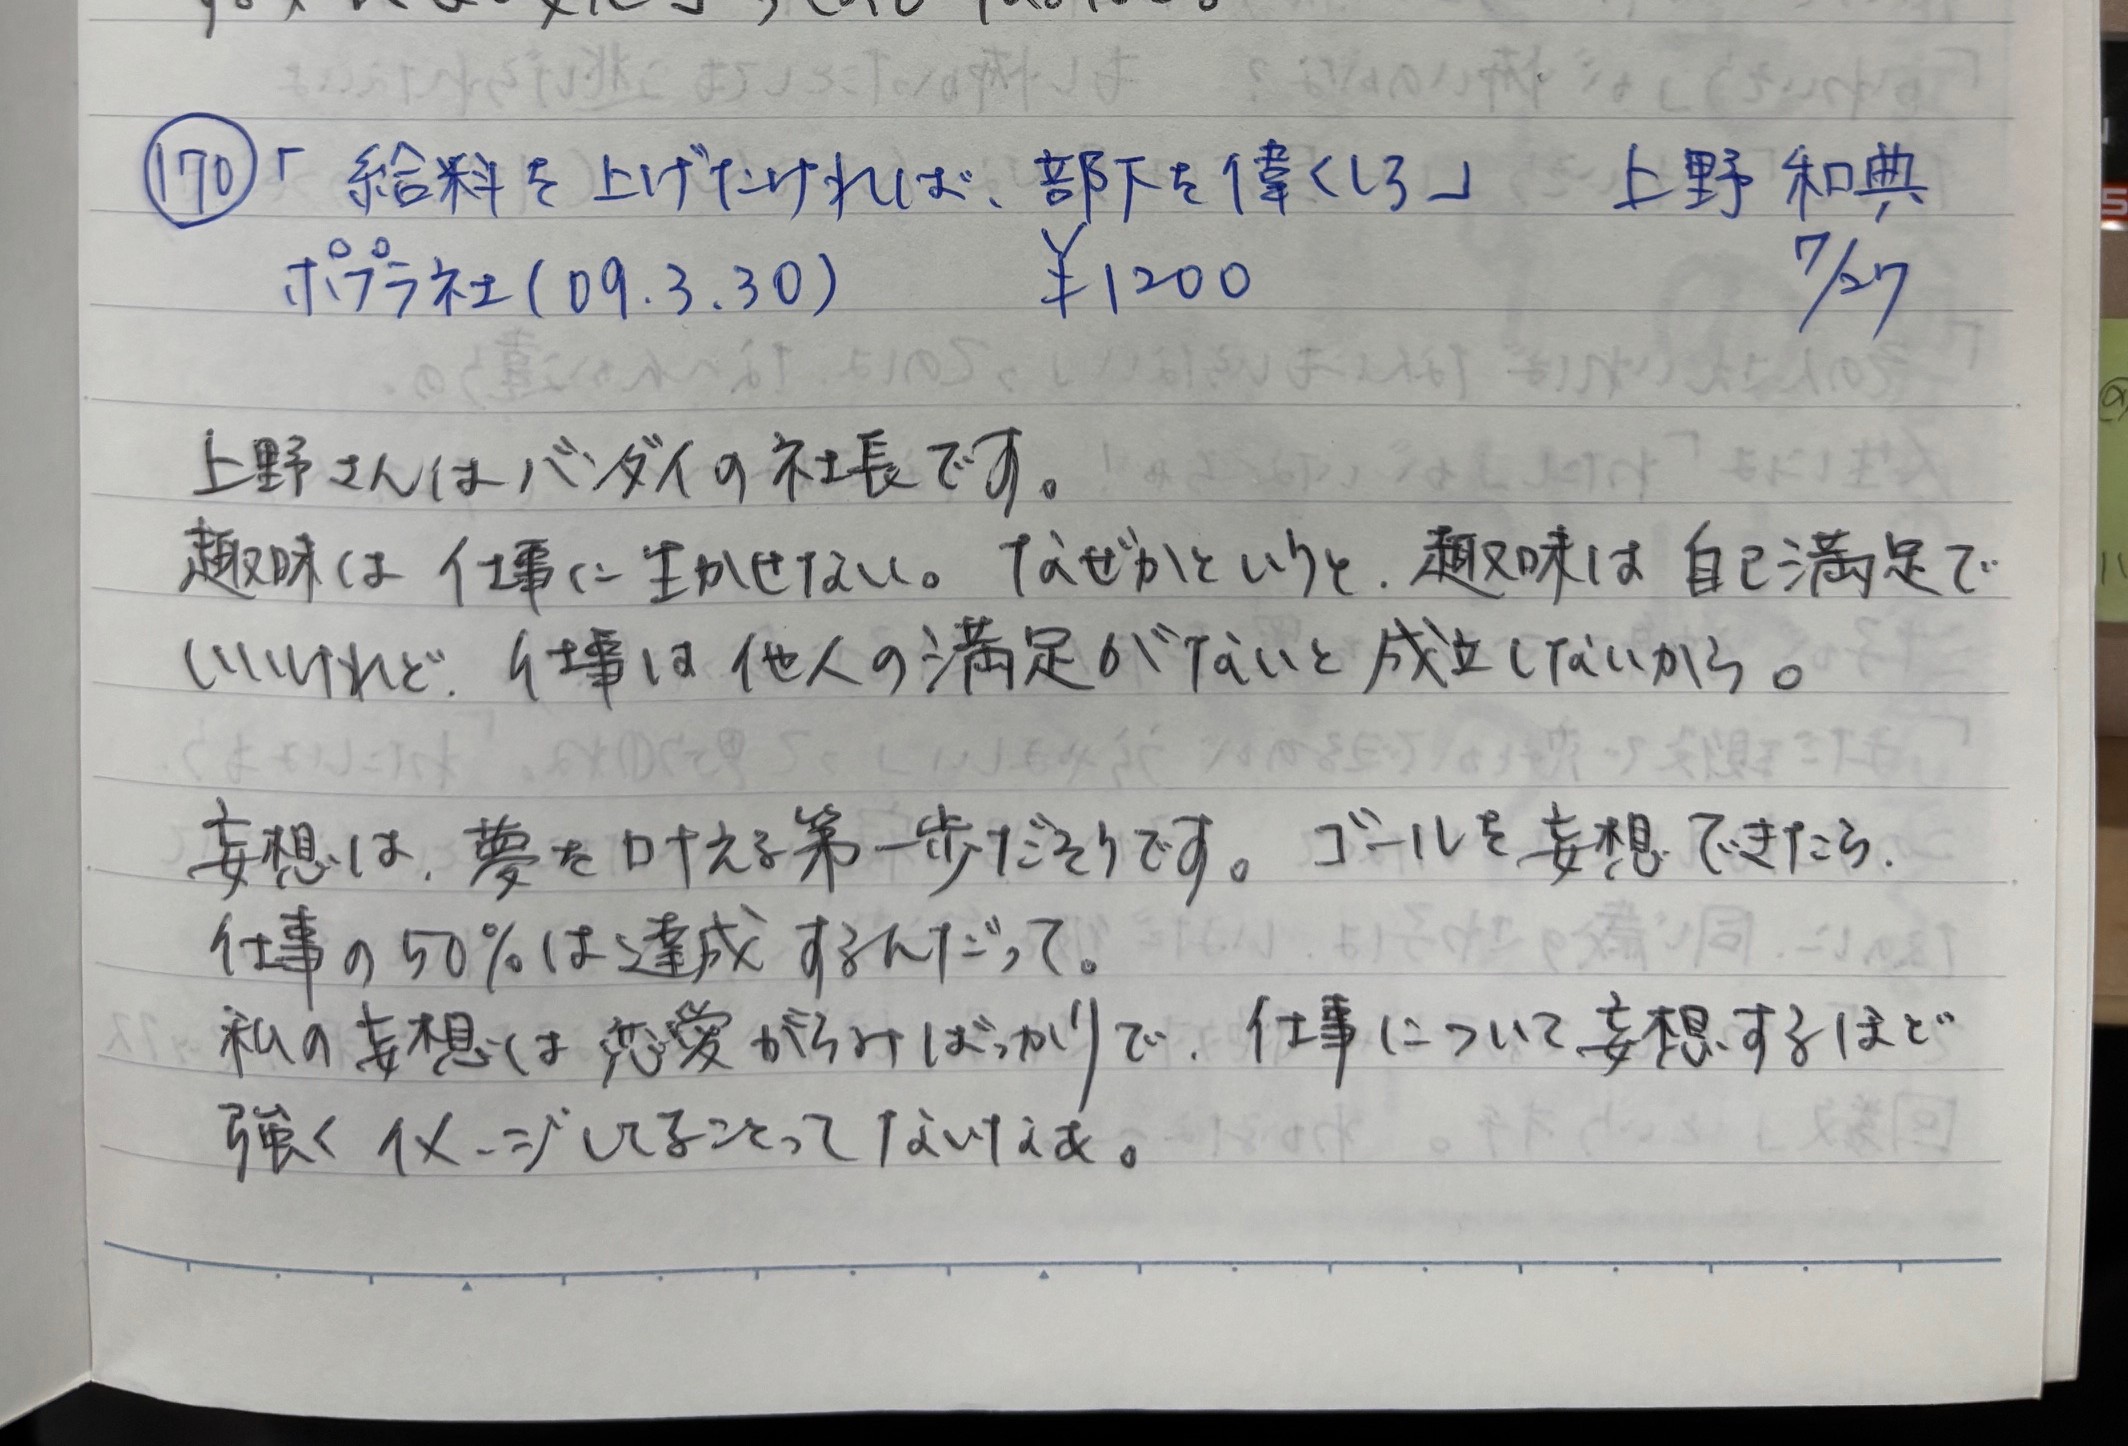 170 「給料を上げたければ、部下を偉くしろ」 上野 和典
ポプラ社(09.3.30) ¥1200 7/27
上野さんはバンダイの社長です。
趣味は仕事に生かせない。なぜかというと、趣味は自己満足で
いいけれど、仕事は他人の満足がないと成立しないから。
妄想は、夢を叶える第一歩だそうです。ゴールを妄想できたら、
仕事の50%は達成するんだって。
私の妄想は恋愛がらみばっかりで、仕事について妄想するほど
強くイメージしてることってないなぁ。